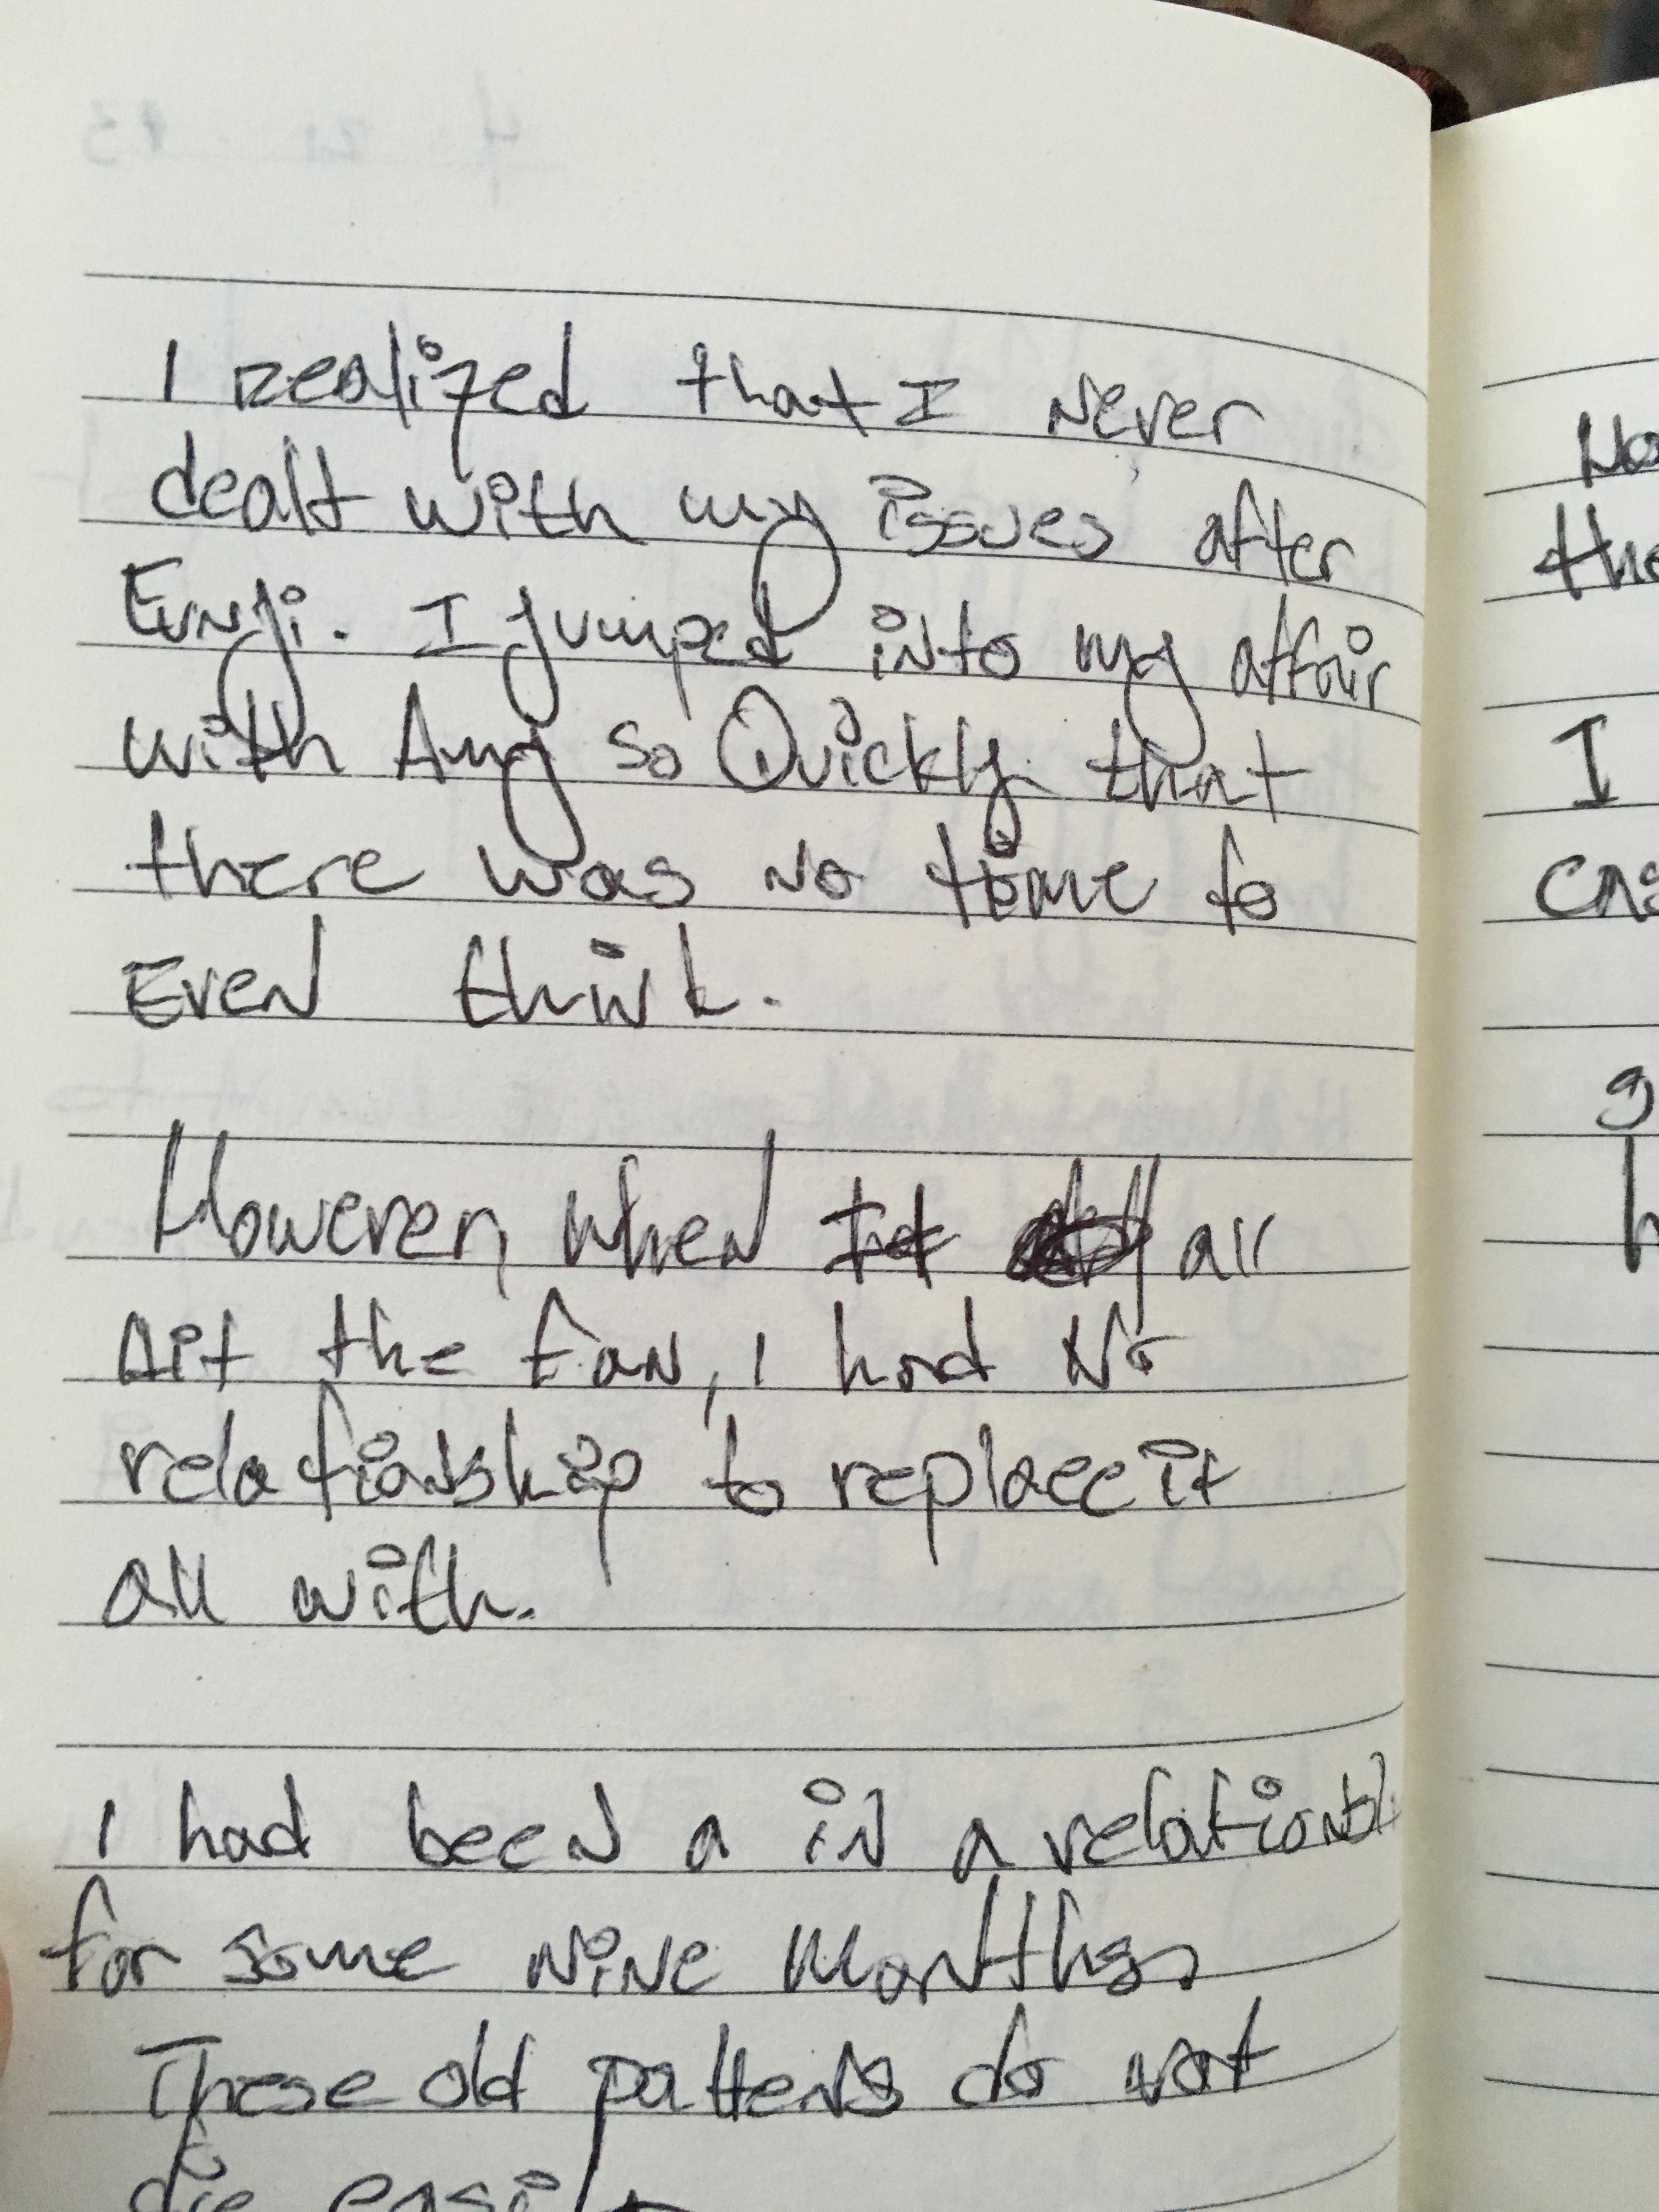 I realized that I Never
dealt with my issues after
Eunji. I jumped into my affair
with Amy so Quickly that
there was No time to
Even think.
However, when all
hit the fan, I had No
relationship to replace it
all with.
I had been a in a relationsh
for some Nine Months.
These old patterns do not
die easily
No
the
I